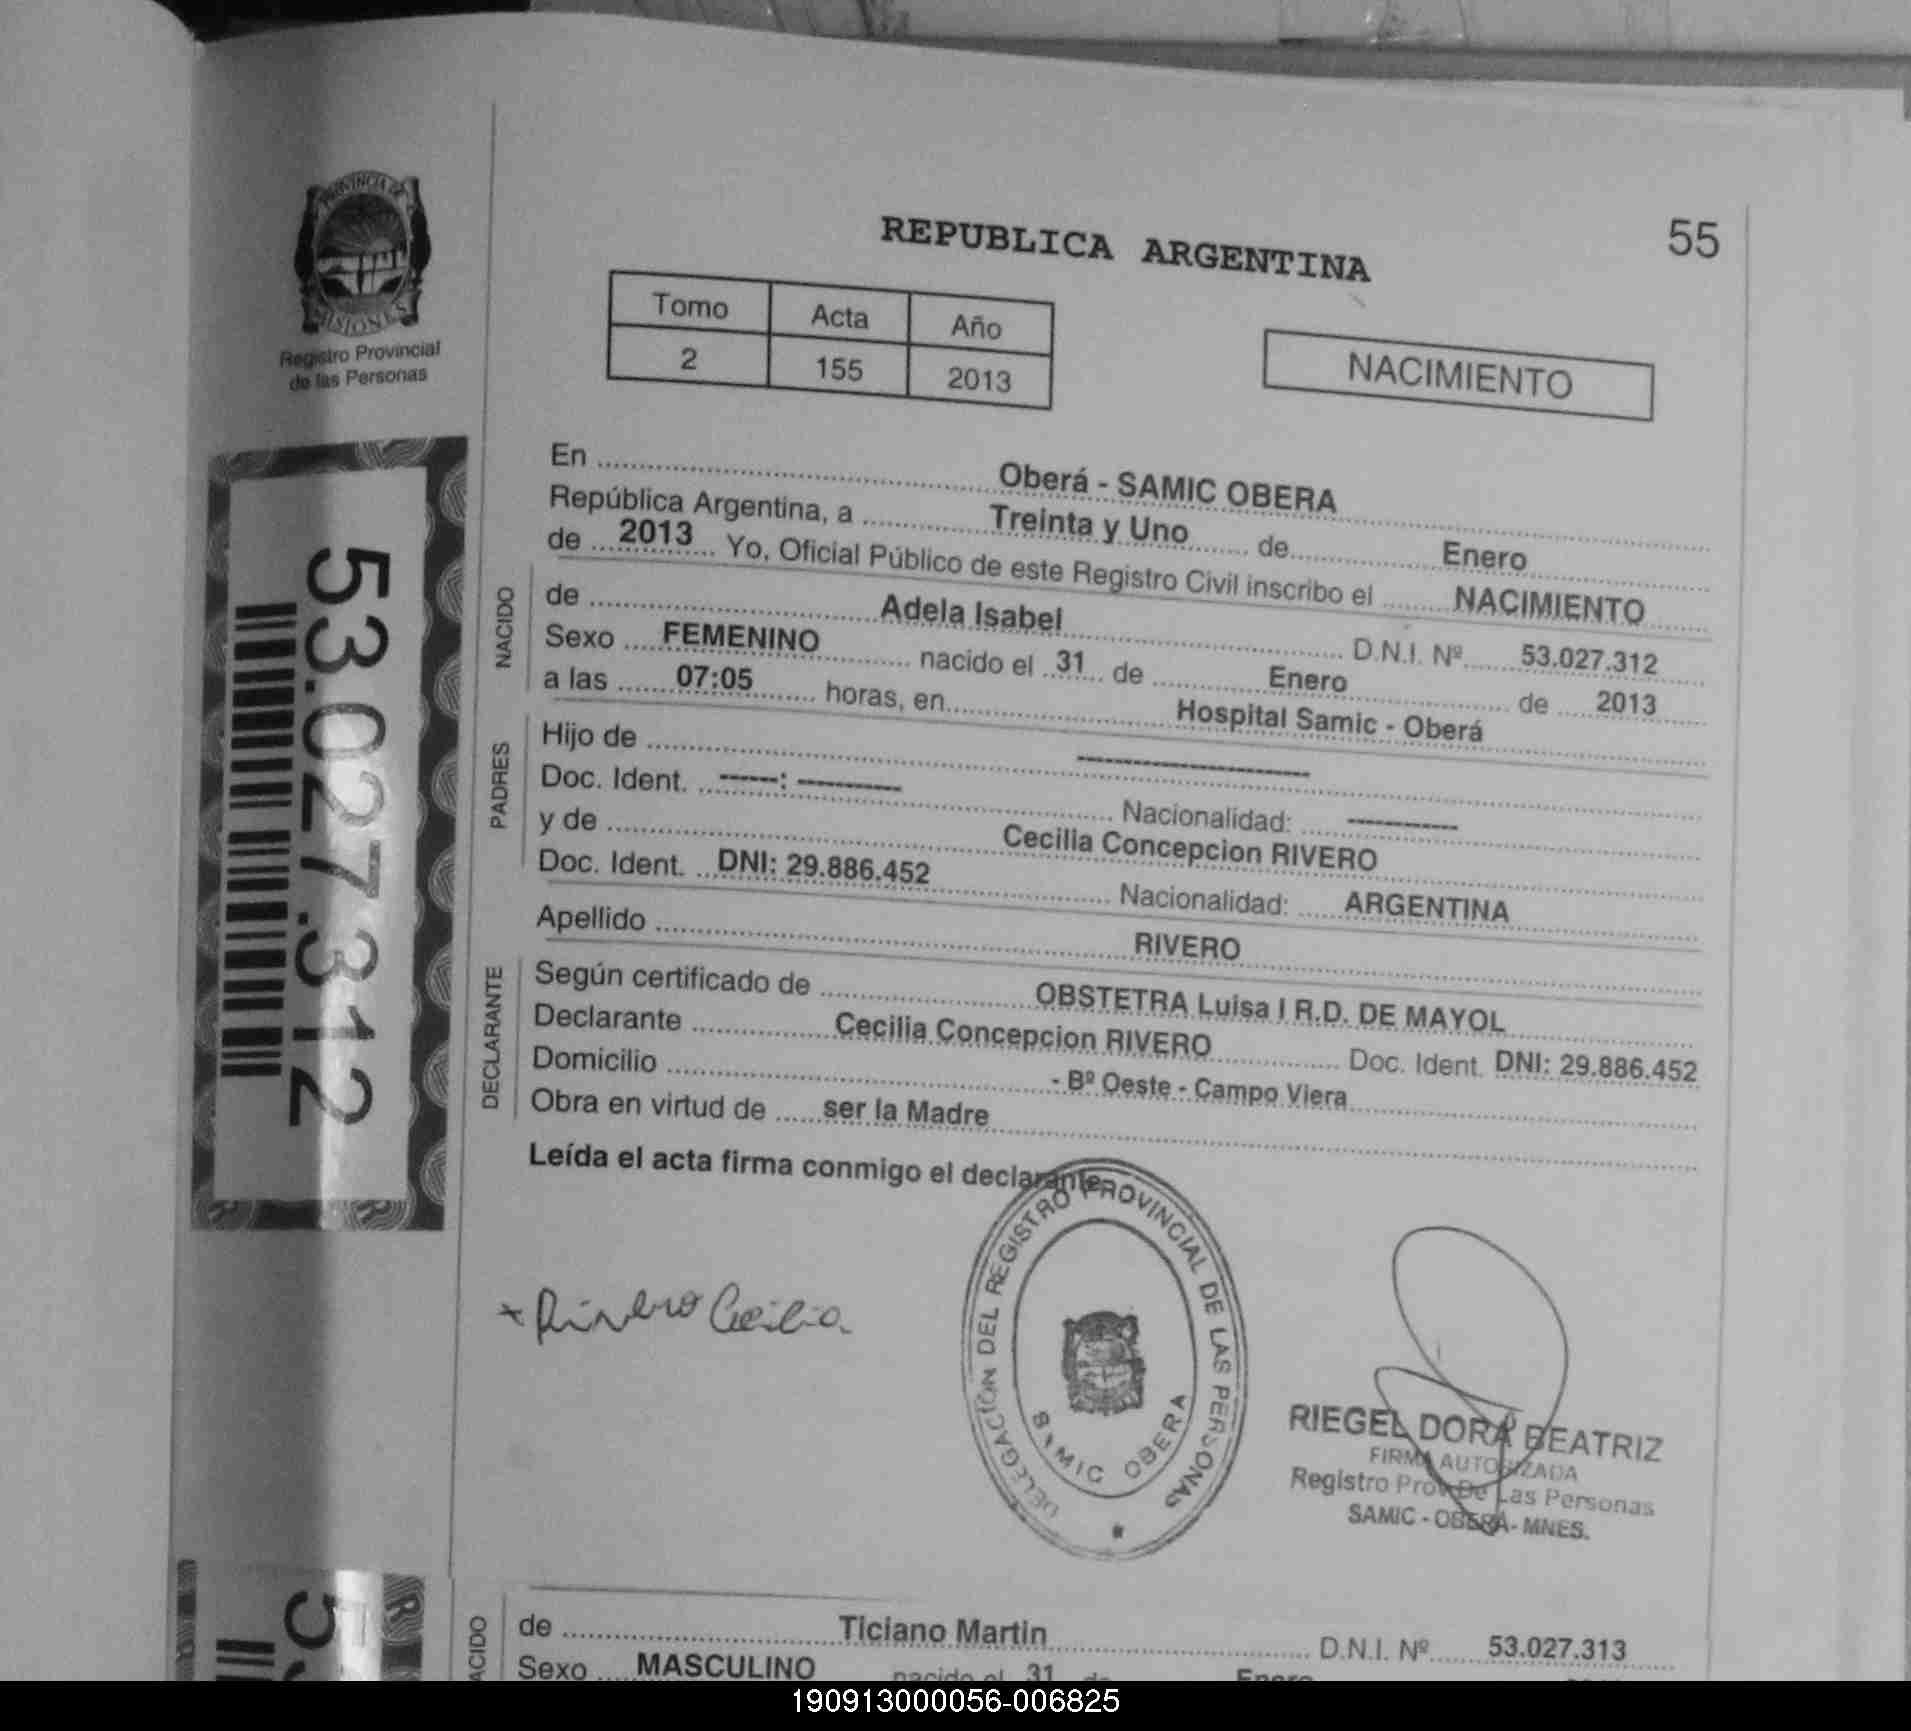 PROVINCIA DE
MISIONES
Registro Provincial
de las Personas
REPUBLICA ARGENTINA
55
Tomo Acta Año
2 155 2013
NACIMIENTO
53.027.312
En Oberá - SAMIC OBERA
República Argentina, a Treinta y Uno de Enero
de 2013 Yo, Oficial Público de este Registro Civil inscribo el NACIMIENTO
NACIDO
de Adela Isabel D.N.I. Nº 53.027.312
Sexo FEMENINO nacido el 31 de Enero de 2013
a las 07:05 horas, en Hospital Samic - Oberá
PADRES
Hijo de ----------------------
Doc. Ident. ------: ---------- Nacionalidad: -----------
y de Cecilia Concepcion RIVERO
Doc. Ident. DNI: 29.886.452 Nacionalidad: ARGENTINA
Apellido RIVERO
DECLARANTE
Según certificado de OBSTETRA Luisa I R.D. DE MAYOL
Declarante Cecilia Concepcion RIVERO Doc. Ident. DNI: 29.886.452
Domicilio - Bº Oeste - Campo Viera
Obra en virtud de ser la Madre
Leída el acta firma conmigo el declarante
x Rivero Cecilia
DELEGACIÓN DEL REGISTRO PROVINCIAL DE LAS PERSONAS
SAMIC OBERA
RIEGEL DORA BEATRIZ
FIRMA AUTORIZADA
Registro Prov De Las Personas
SAMIC - OBERÁ - MNES.
de Ticiano Martin D.N.I. Nº 53.027.313
Sexo MASCULINO nacido el 31 de Enero
190913000056-006825